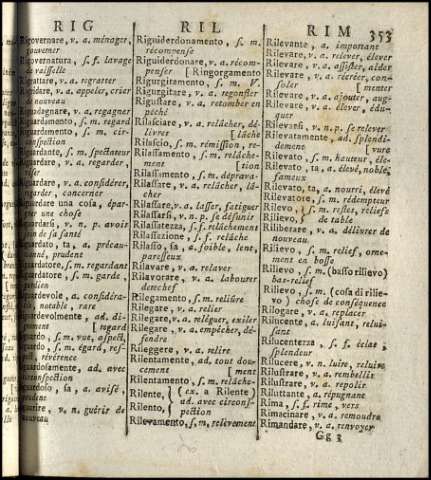 RIG
RIL
RIM
353
Rigovernare, v. a. ménager,
gouverner
Rigovernatura, s. f. lavage
de vaisselle
Rigrattare, v. a. regratter
Rigridare, v. a. appeler, crier
de nouveau
Riguadagnare, v. a. regagner
Riguardamento, s. m. regard
Riguardamento, s. m. cir-
conspection
Riguardante, s. m. spectateur
Riguardare, v. a. regarder,
viser
Riguardare, v. a. considérer,
regarder, concerner
Riguardare una cosa, épar-
gner une chose
Riguardarsi, v. n. p. avoir
soin de sa santé
Riguardato, ta, a. précau-
tionné, prudent
Riguardatore, s. m. regardant
Riguardatore, s. m. garde,
gardien
Riguardevole, a. considéra-
ble, notable, rare
Riguardevolmente, ad. di-
gnement [ regard
Riguardo, s. m. vue, aspect,
Riguardo, s. m. égard, res-
pect, révérence
Riguardosamente, ad. avec
circonspection
Riguardoso, sa, a. avisé,
prudent
Riguarire, v. n. guérir de
nouveau
Riguiderdonamento, s. m.
récompense
Riguiderdonare, v. a. récom-
penser [ Ringorgamento
Rigurgitamento, s. m. V.
Rigurgitare, v. a. regonfler
Rigustare, v. a. retomber en
péché
Rilasciare, v. a. relâcher, dé-
livrer [ lâche
Rilascio, s. m. rémission, re-
Rilassamento, s. m. relâche-
ment [ tion
Rilassamento, s. m. déprava-
Rilassare, v. a. relâcher, lâ-
cher
Rilassare, v. a. lasser, fatiguer
Rilassarsi, v. n. p. se désunir
Rilassatezza, s. f. relâchement
Rilassazione, s. f. relâche
Rilasso, sa, a. foible, lent,
paresseux
Rilavare, v. a. relaver
Rilavorare, v. a. labourer
derechef
Rilegamento, s. m. reliûre
Rilegare, v. a. relier
Rilegare, v. a. reléguer, exiler
Rilegare, v. a. empêcher, dé-
fendre
Rileggere, v. a. relire
Rilentamente, ad. tout dou-
cement [ ment
Rilentamento, s. m. relâche-
Rilente, } ( ex. a Rilente)
Rilento, } ad. avec circons-
pection
Rilevamento, s. m. relevement
Rilevante, a. important
Rilevare, v. a. relever, élever
Rilevare, v. a. assister, aider
Rilevare, v. a. récréer, con-
soler [ menter
Rilevare, v. a. ajouter, aug-
Rilevare, v. a. élever, édu-
quer
Rilevarsi, v. n. p. se relever
Rilevatamente, ad. splendi-
demene [ vure
Rilevato, s. m. hauteur, éle-
Rilevato, ta, a. élevé, noble,
fameux
Rilevato, ta, a. nourri, élevé
Rilevatore, s. m. rédempteur
Rilevo, } s. m. restes, reliefs
Rilievo, } de table
Riliberare, v. a. délivrer de
nouveau
Rilievo, s. m. relief, orne-
ment en bosse
Rilievo, s. m. (basso rilievo)
bas-relief
Rilievo, s. m. (cosa di rilie-
vo) chose de conséquence
Rilogare, v. a. replacer
Rilucente, a. luisant, relui-
sant
Rilucentezza, s. f. éclat,
splendeur
Rilucere, v. n. luire, reluire
Rilustrare, v. a. rembellir
Rilustrare, v. a. repolir
Riluttante, a. répugnane
Rima, s. f. rime, vers
Rimacinare, v. a. remoudre
Rimandare, v. a. renvoyer
Gg 3